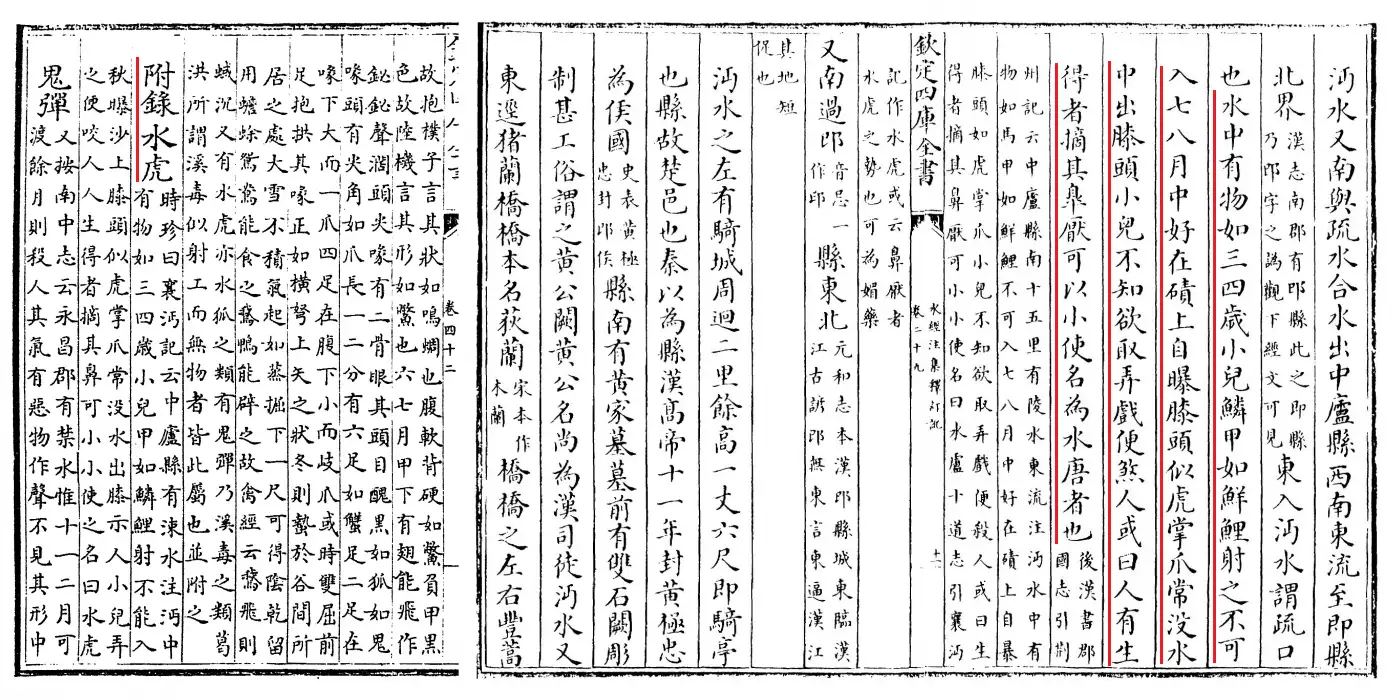 沔水又南與疏水合水出中廬縣西南東流至邔縣
北界漢志南郡有邔縣此之即縣乃邔字之譌觀下經文可見東入沔水謂疏口
也水中有物如三四歲小兒鱗甲如鮮鯉射之不可
入七八月中好在磧上自曝膝頭似虎掌爪常没水
中出膝頭小兒不知欲取弄戲便煞人或曰人有生
得者摘其臯厭可以小使名為水唐者也後漢書郡國志引荆
州記云中廬縣南十五里有陵水東流注沔水中有
物如馬甲如鮮鯉不可入七八月中好在磧上自暴
膝頭如虎掌爪小兒不知欲取弄戲便殺人或曰生
得者摘其鼻厭可小小使名曰水盧十道志引襄沔
欽定四庫全書
水經注集釋訂訛
卷二十九
十一
記作水虎或云鼻厭者
水虎之勢也可為媚藥
又南過邔音忌一作印縣東北元和志本漢邔縣城東臨漢江古諺邔無東言東逼漢江
其地短
促也
沔水之左有騎城周迴二里餘高一丈六尺即騎亭
也縣故楚邑也秦以為縣漢髙帝十一年封黃極忠
為侯國史表黃極忠封邔侯縣南有黃家墓墓前有雙石闕彫
制甚工俗謂之黃公闕黃公名尚為漢司徒沔水又
東逕猪蘭橋橋本名荻蘭宋本作木蘭橋橋之左右豐蒿
卷四十二
故抱撲子言其狀如鳴蜩也腹軟背硬如鱉負甲黑
色故陸機言其形如鱉也六七月甲下有翅能飛作
鉍鉍聲濶頭尖喙有二骨眼其頭目醜黑如狐如鬼
喙頭有尖角如爪長一二分有六足如蟹足二足在
喙下大而一爪四足在腹下小而歧爪或時雙屈前
足抱拱其喙正如横弩上矢之狀冬則蟄於谷間所
居之處大雪不積氣起如蒸掘下一尺可得陰乾留
用蟾蜍鴛鴦能食之鵞鴨能辟之故禽經云鵞飛則
蜮沉又有水虎亦水狐之類有鬼彈乃溪毒之類葛
洪所謂溪毒似射工而無物者皆此屬也並附之
附錄水虎時珍曰襄沔記云中廬縣有涑水注沔中有物如三四歲小兒甲如鱗鯉射不能入
秋曝沙上膝頭似虎掌爪常没水出膝示人小兒弄
之便咬人人生得者摘其鼻可小小使之名曰水虎
鬼彈又按南中志云永昌郡有禁水惟十一二月可渡餘月則殺人其氣有惡物作聲不見其形中